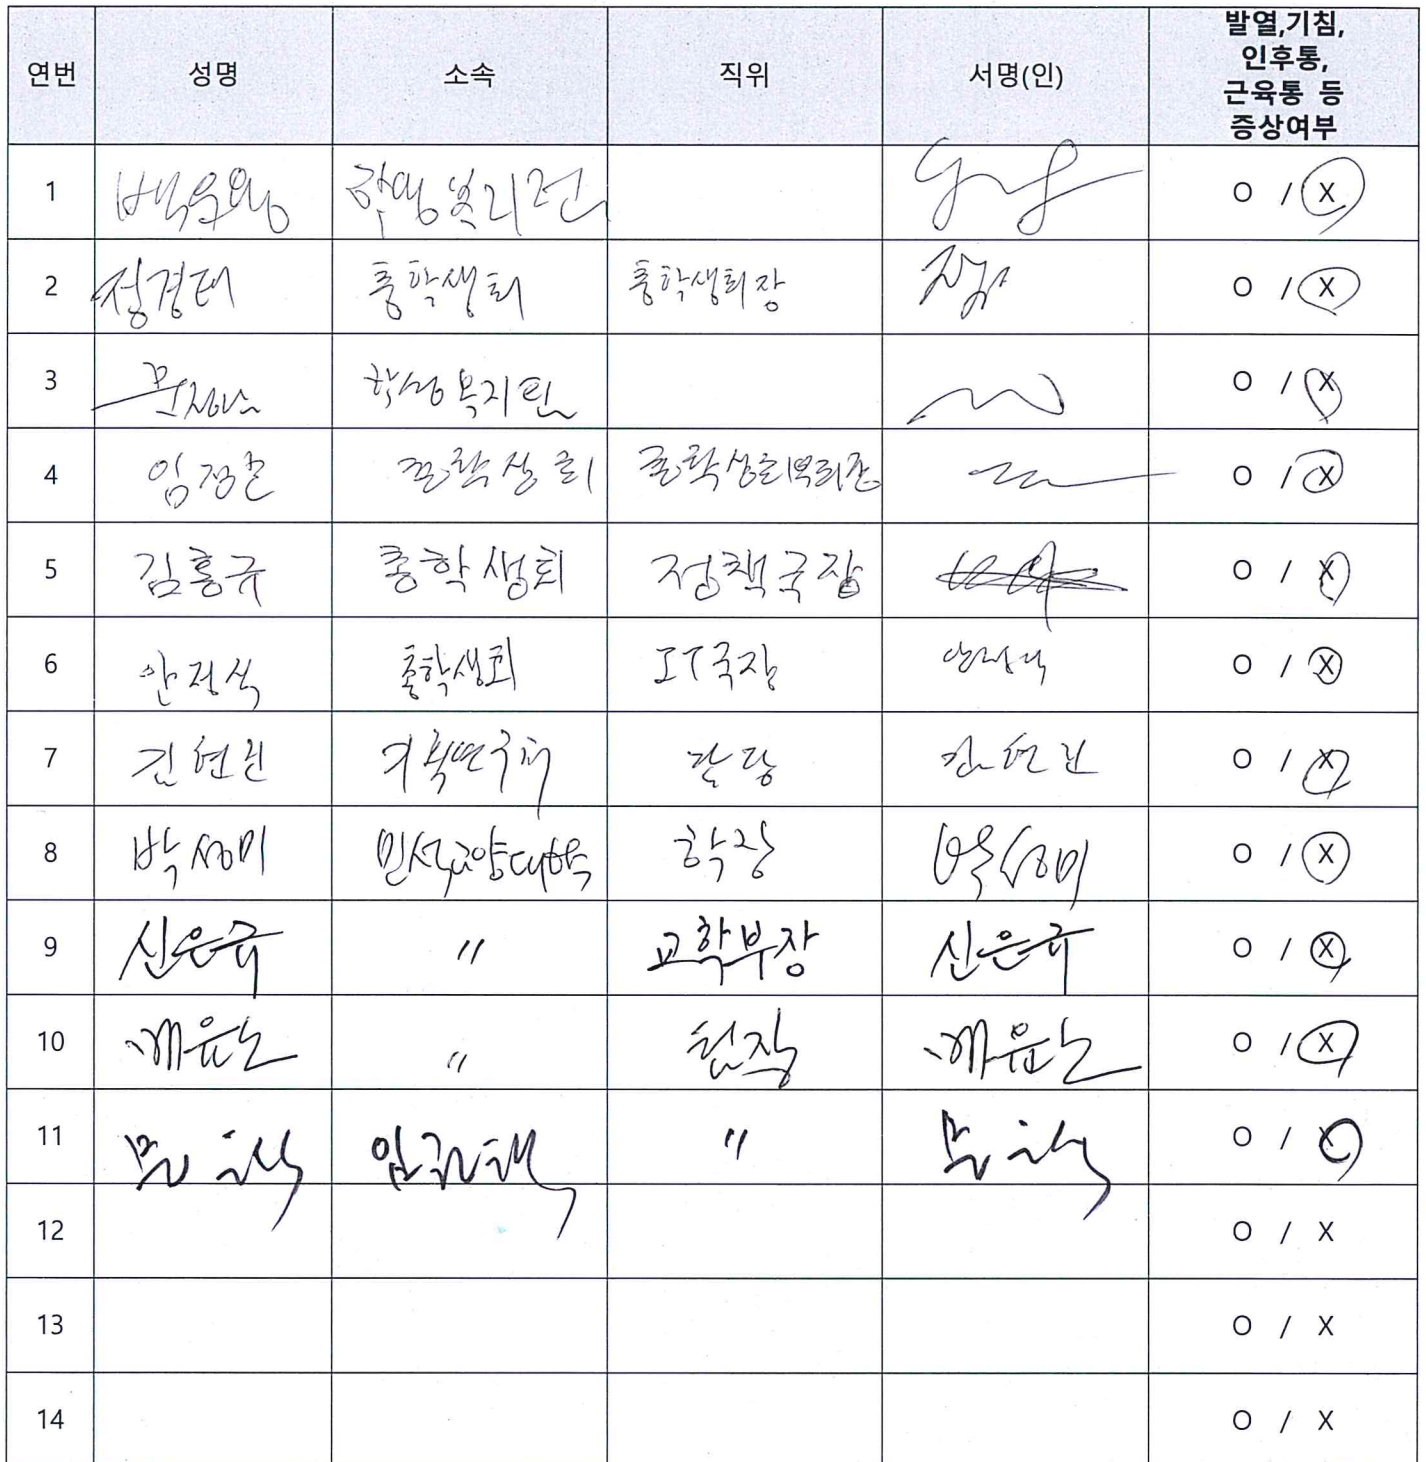 연번 성명 소속 직위 서명(인) 발열,기침,
인후통,
근육통 등
증상여부
1 학생복지팀 O / X
2 정경태 총학생회 총학생회장 O / X
3 학생복지팀 O / X
4 총학생회 총학생회부회장 O / X
5 김홍규 총학생회 정책국장 O / X
6 안정식 총학생회 IT국장 안정식 O / X
7 김현진 기획연구처 팀장 김현진 O / X
8 박성미 민석교양대학 학장 박성미 O / X
9 신은규 〃 교학부장 신은규 O / X
10 〃 팀장 O / X
11 〃 O / X
12 O / X
13 O / X
14 O / X